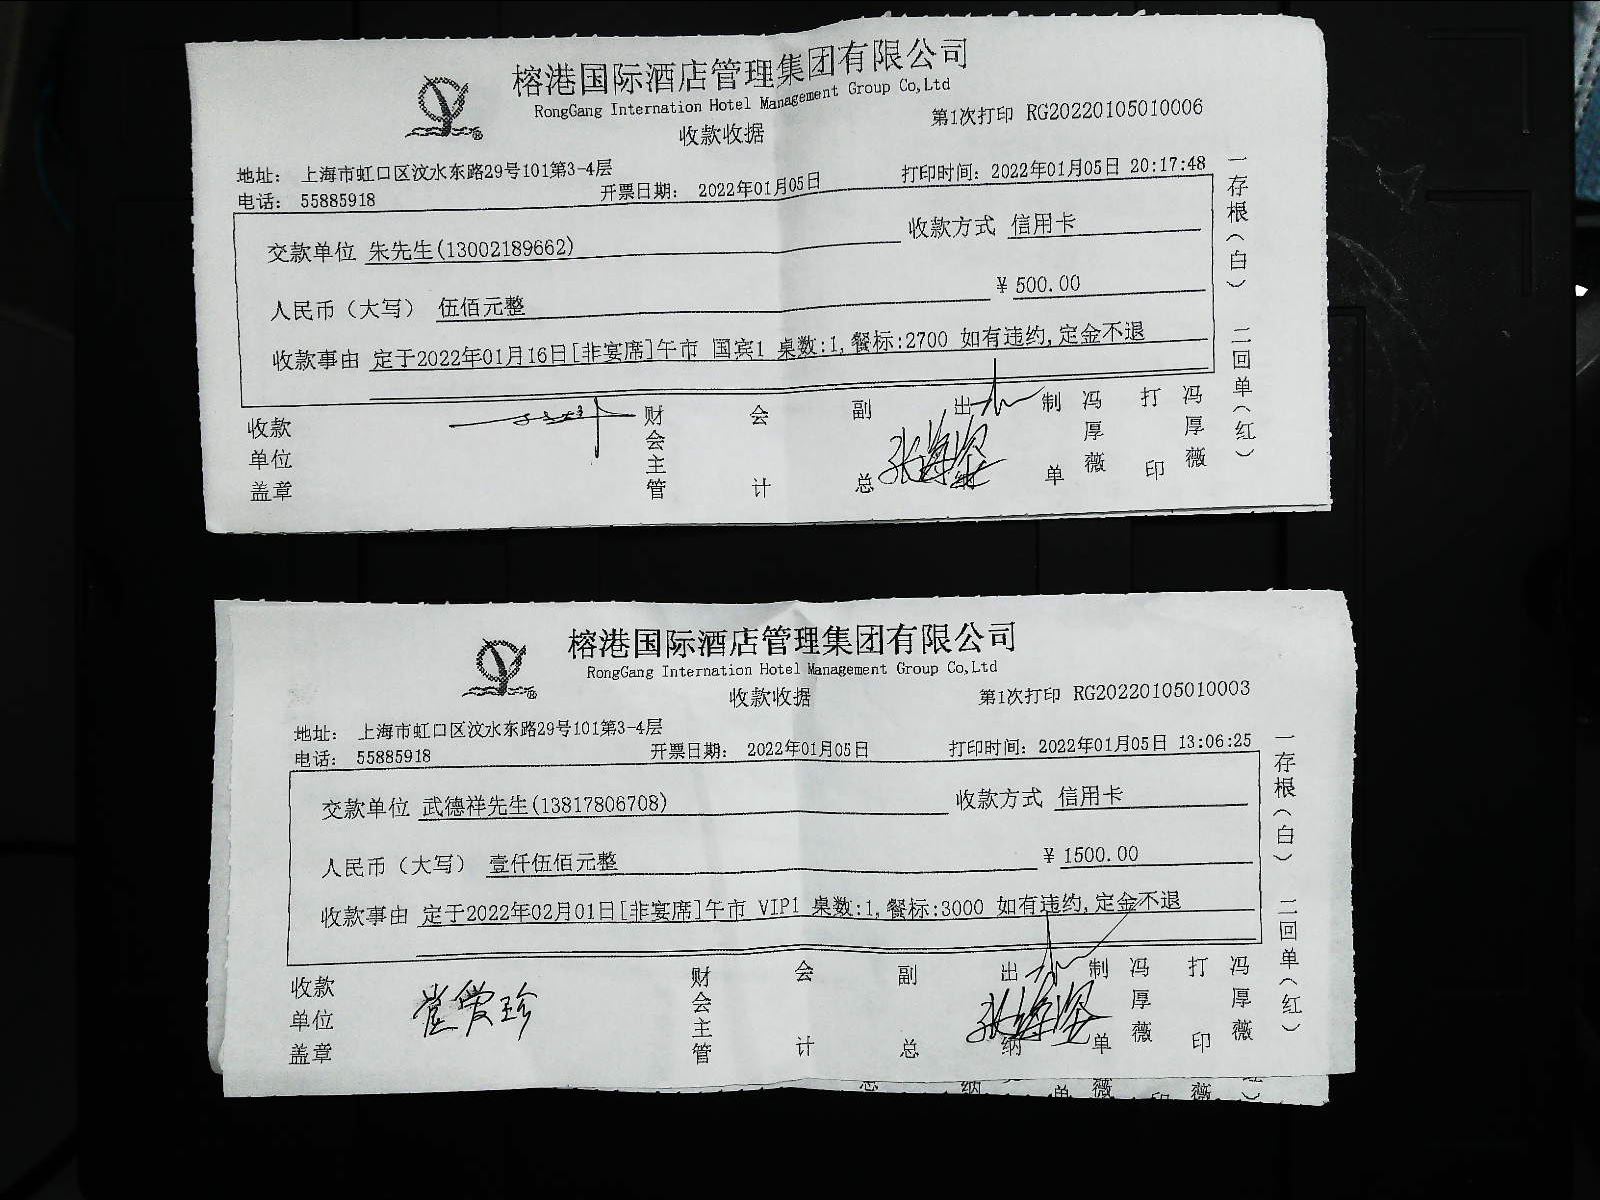 榕港国际酒店管理集团有限公司
RongGang Internation Hotel Management Group Co,Ltd
收款收据
第1次打印 RG20220105010006
地址: 上海市虹口区汶水东路29号101第3-4层
电话: 55885918
开票日期: 2022年01月05日
打印时间: 2022年01月05日 20:17:48
交款单位 朱先生(13002189662)
收款方式 信用卡
人民币（大写） 伍佰元整
¥ 500.00
收款事由 定于2022年01月16日[非宴席]午市 国宾1 桌数:1,餐标:2700 如有违约,定金不退
收款单位盖章
财会主管
会计
副总
出纳
制单
冯厚薇
打印
冯厚薇
一存根(白) 二回单(红)
榕港国际酒店管理集团有限公司
RongGang Internation Hotel Management Group Co,Ltd
收款收据
第1次打印 RG20220105010003
地址: 上海市虹口区汶水东路29号101第3-4层
电话: 55885918
开票日期: 2022年01月05日
打印时间: 2022年01月05日 13:06:25
交款单位 武德祥先生(13817806708)
收款方式 信用卡
人民币（大写） 壹仟伍佰元整
¥ 1500.00
收款事由 定于2022年02月01日[非宴席]午市 VIP1 桌数:1,餐标:3000 如有违约,定金不退
收款单位盖章
财会主管
会计
副总
出纳
制单
冯厚薇
打印
冯厚薇
一存根(白) 二回单(红)
总 纳 单 薇 印 薇